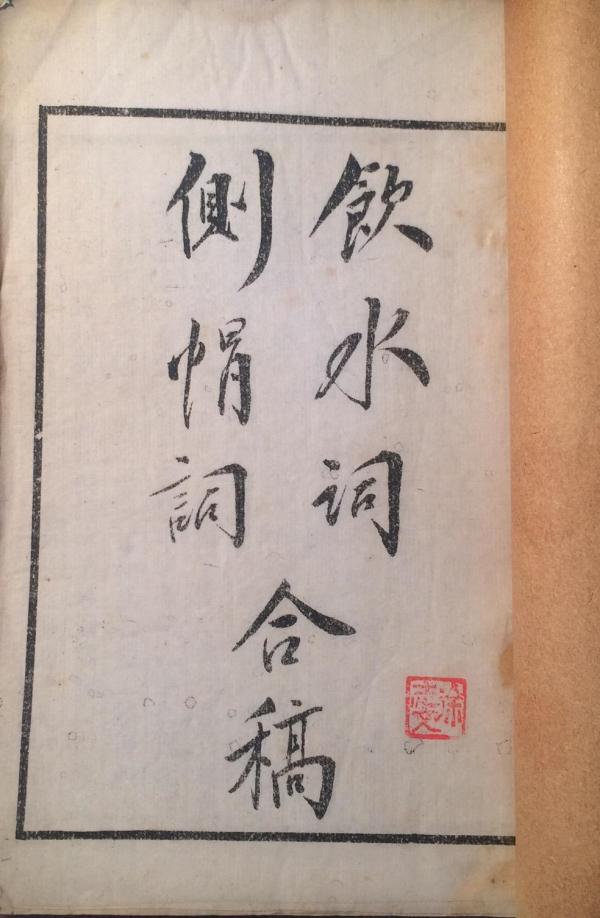 飲水词
側帽詞
合稿